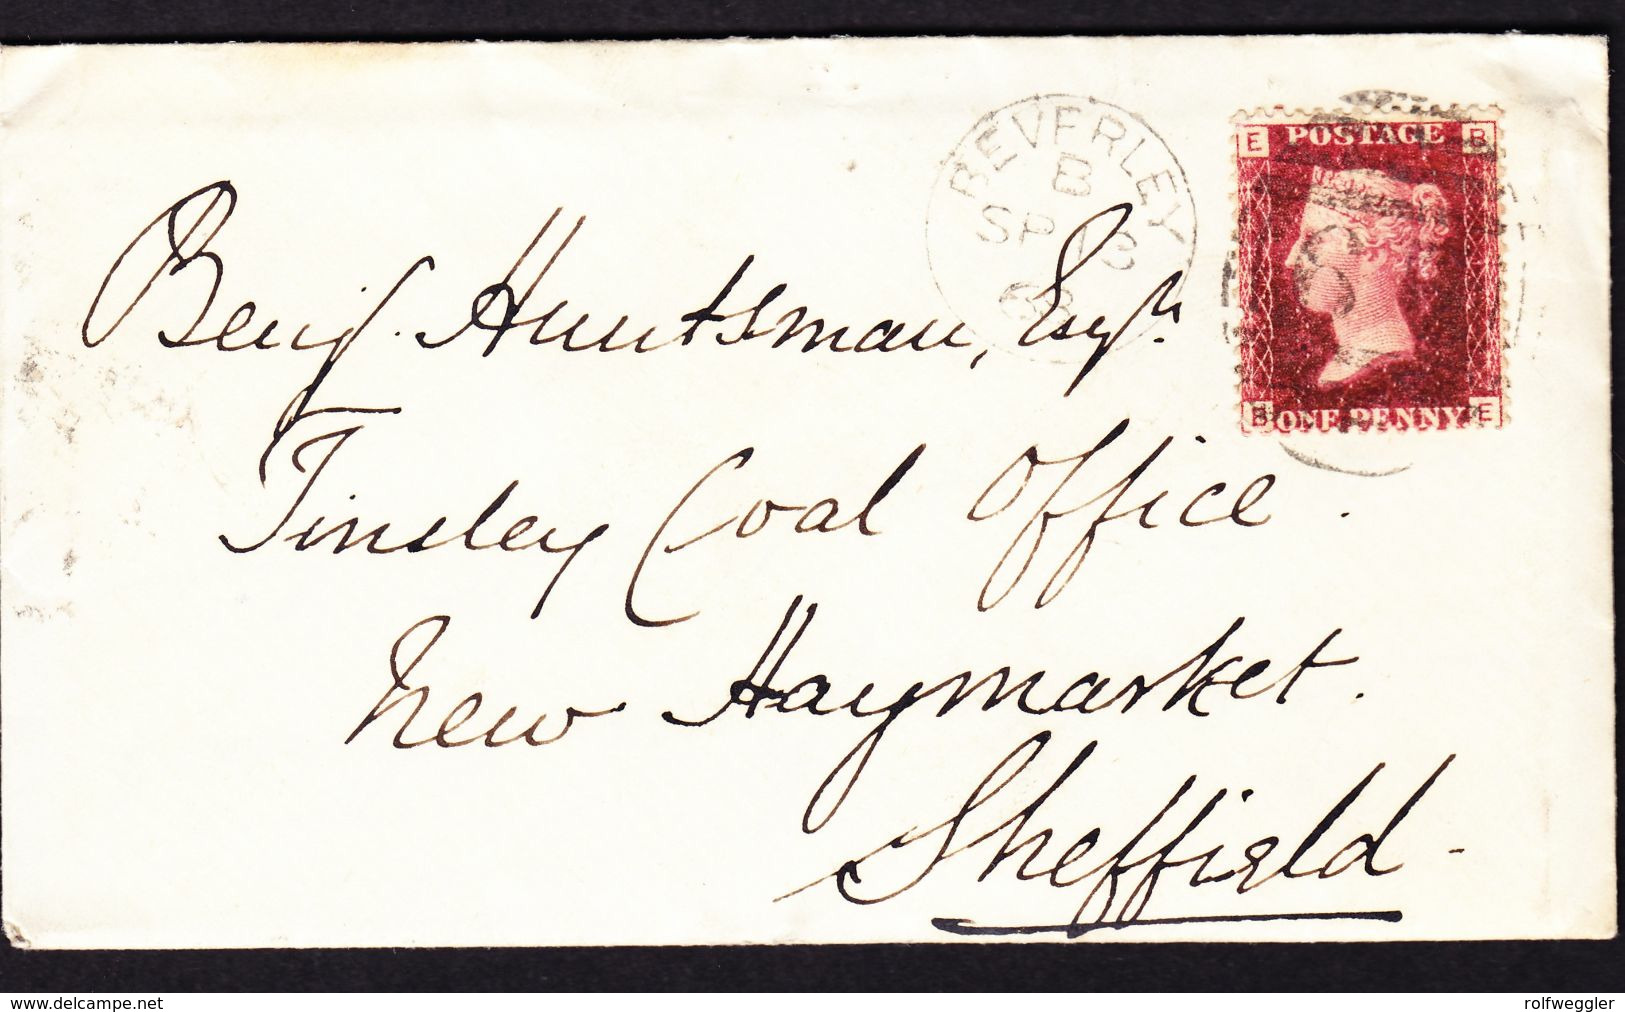 BEVERLEY
B
SP 13
68
E POSTAGE B
B ONE PENNY E
Benj. Huntsman, Esqr.
Tinsley Coal Office.
New Haymarket.
Sheffield-
www.delcampe.net
rolfweggler